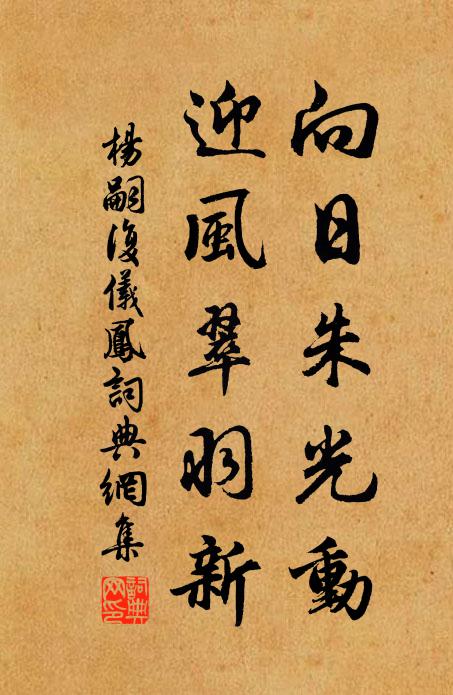 向日朱光動
迎風翠羽新
楊嗣復儀鳳詞典網集
詞典網印